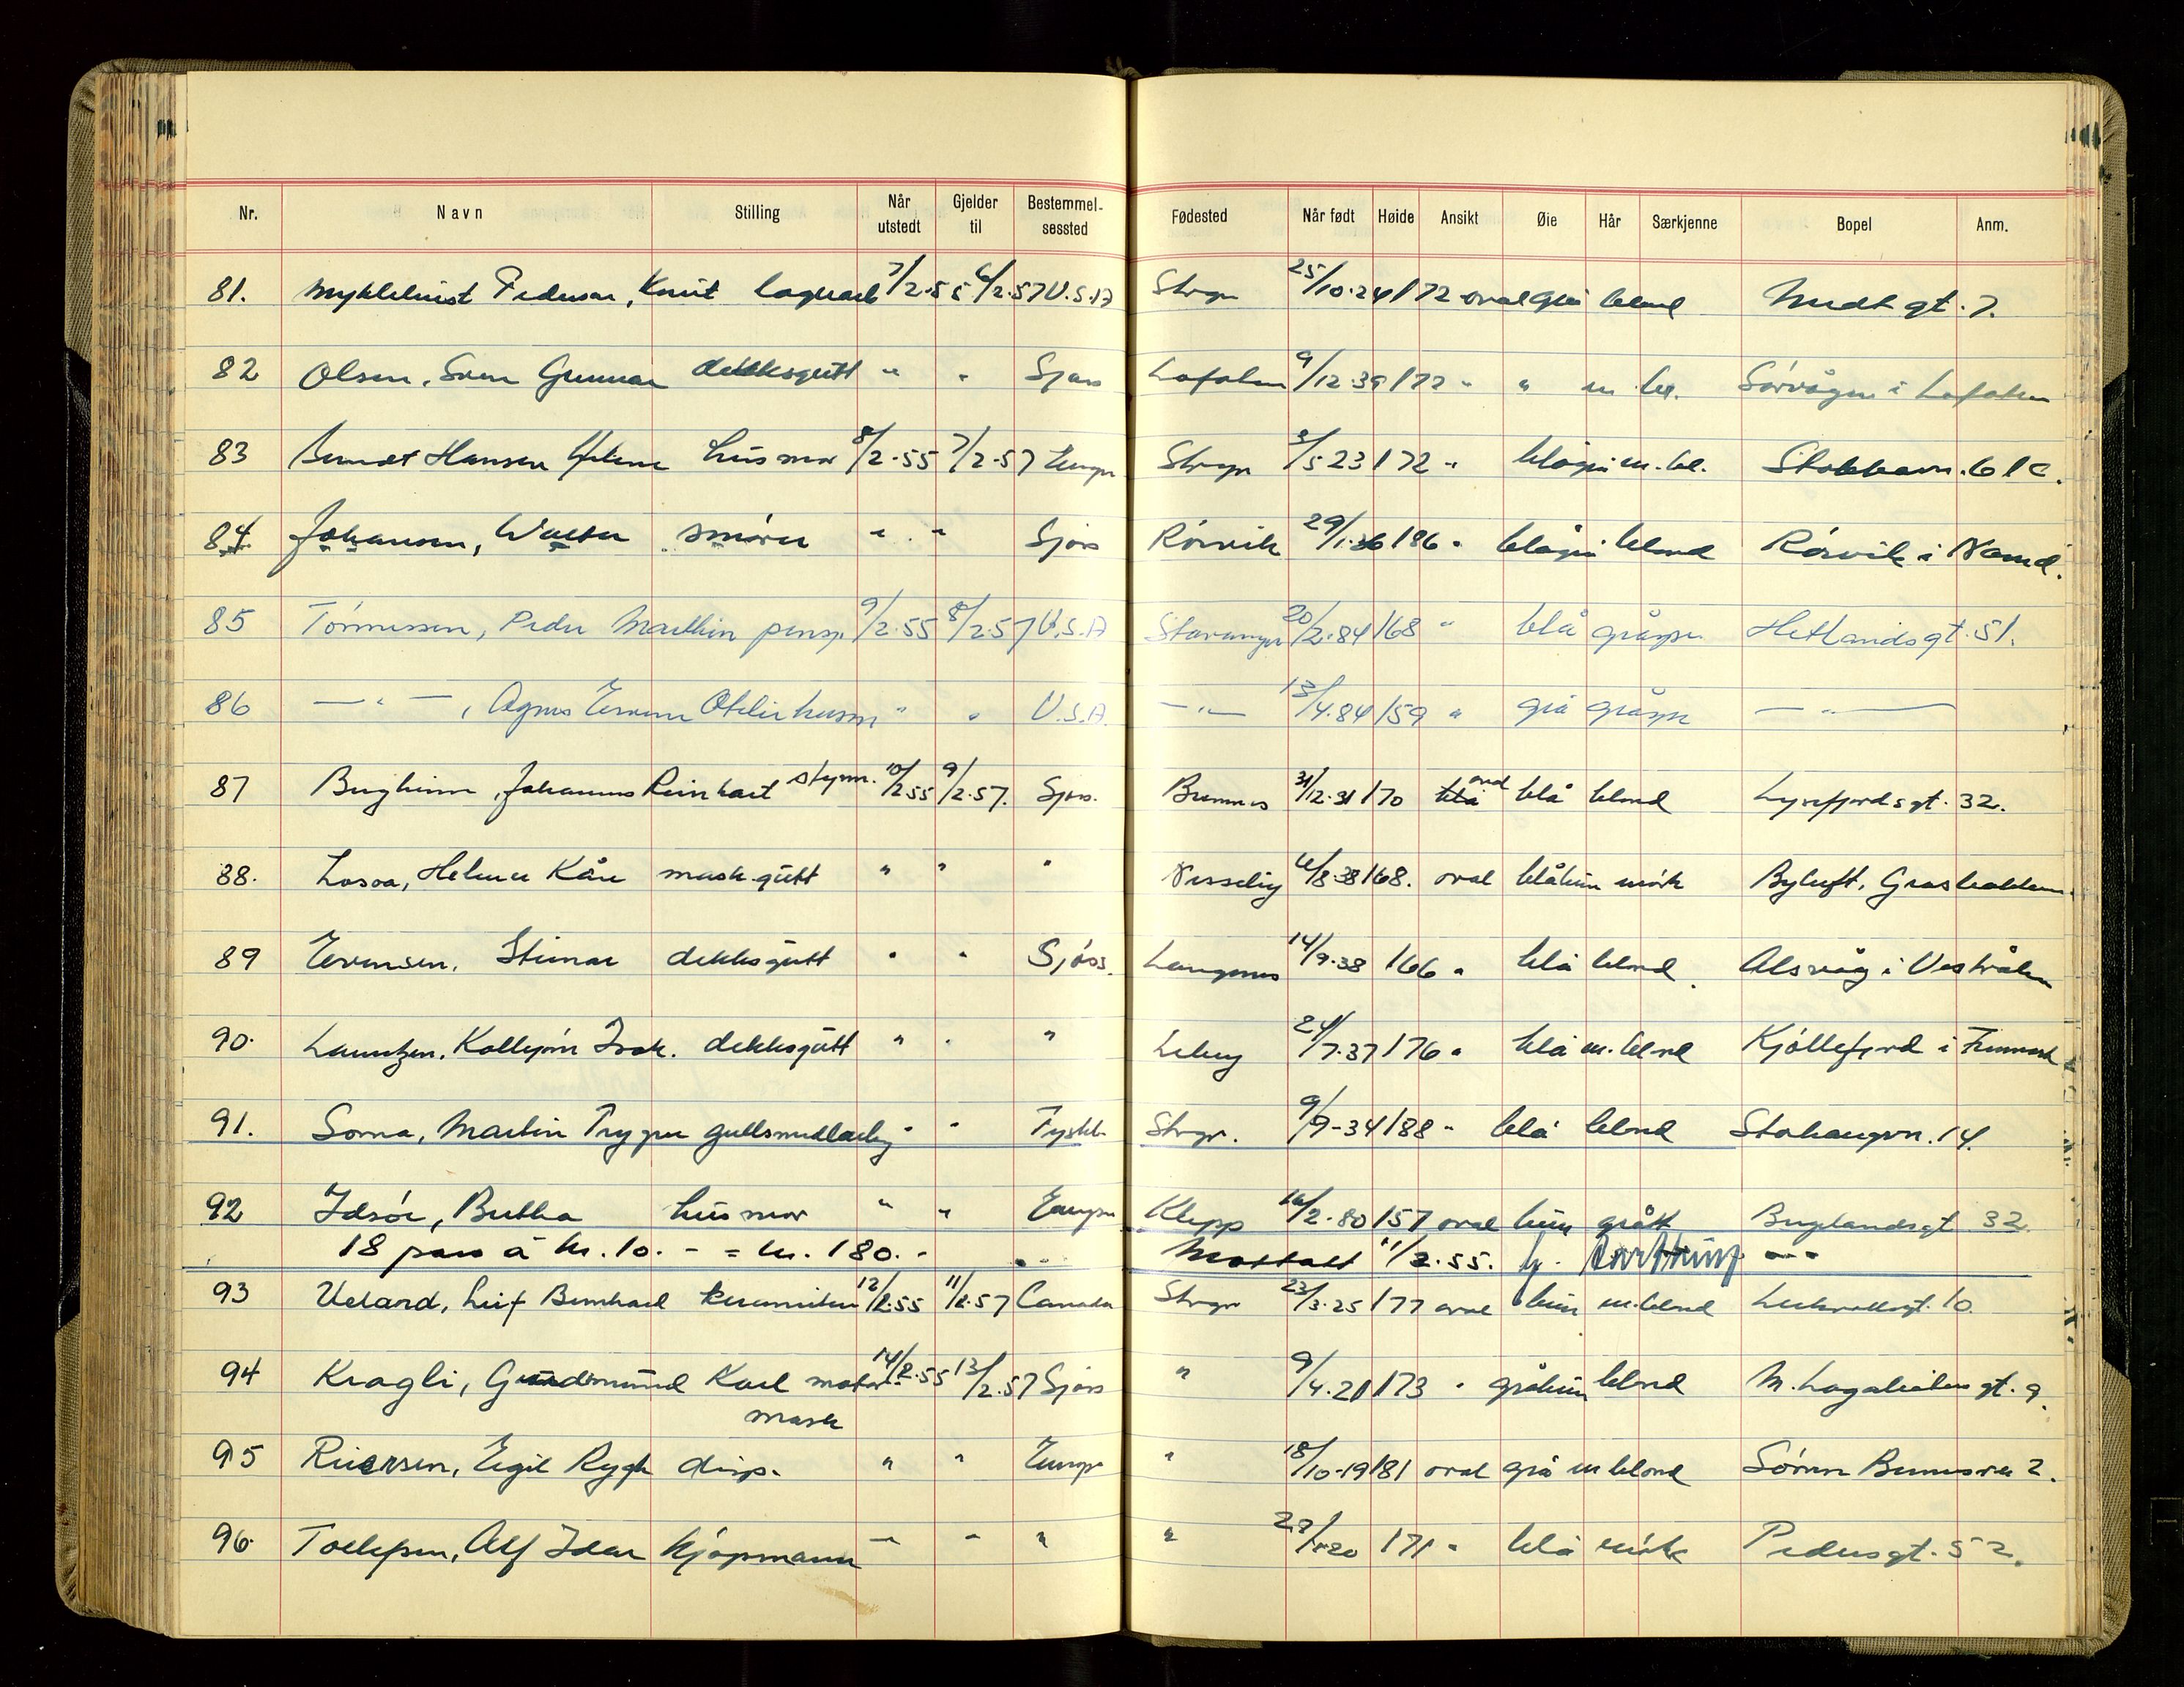 Nr. Navn Stilling Når utstedt Gjelder til Bestemmelsessted Fødested Når født Høide Ansikt Øie Hår Særkjenne Bopel Anm.
81. Myklebust Pedersen, Knut lagerarb 7/2-55 6/2-57 U.S.A Stvgr 25/10-24 172 oval grå blond Midt gt. 7.
82 Olsen, Sven Gunnar dekksgutt " " Sjøss Lofoten 9/12-39 172 " " m. bl. Sörvågen i Lofoten
83 Berndt Hansen Helene husmor 8/2-55 7/2-57 Europa Stvgr 5-23 172 " blågrå m. bl. Stokkavn. 61c.
84 Johansen, Walter smører " " Sjøss Rörvik 29/1-36 186 " blågrå blond Rörvik i Namd.
85 Tönnessen, Peder Marthin pensj. 9/2-55 8/2-57 U.S.A Stavanger 20/2-84 168 " blå gråspr. Hetlandsgt. 51.
86 — " — , Agnes Otelie husm " " U.S.A. — " — 13/4-84 159 " grå gråspr — " —
87 Bergheim, Johannes Reinhart styrm. 10/2-55 9/2-57. Sjøss. 31/12-31 170 blå oval blå blond Lysefjordsgt. 32.
88. Losoa, Helmer Kåre mask.gutt " " " 6/8-38 168. oval mörk Byluft,
89 Evensen, Steinar dekksgutt " " Sjöss. Langenes 14/9-38 166 " blå blond. Alsvåg i Vesterålen
90. Lauritzen, Kolbjörn Isak. dekksgutt " " " Lebesby 24/7-37 176 " blå m. blond Kjöllefjord i Finnmark
91. Soma, Martin Trygve gullsmedlærling " " Tyskl. Stvgr. 9/9-34 188 " blå blond Stokavgn. 14.
92 Idsöe, Bertha husmor " " Europa Klepp 16/2-80 157 oval brun grått Buglandsgt 32.
18 pass á kr. 10.- = kr. 180.- Mottatt 11/2-55.
93 Veland, Leif Bernhard keramiker 12/2-55 11/2-57 Canada Stvgr 23/3-25 177 oval brun m. blond 10.
94 Kragli, Gudmund Karl motor- 14/2-55 13/2-57 Sjøss " 9/4-21 173 " gråbrun blond M. Lagaholms gt. 9.
mask
95 Riersen, Egil Rygh disp. " " Europa " 18/10-19 181 oval grå m blond Sören Bernersvn 2.
96. Tollefsen, Alf Idar kjøpmann " " " " 171 " blå mörk Pedersgt. 52.